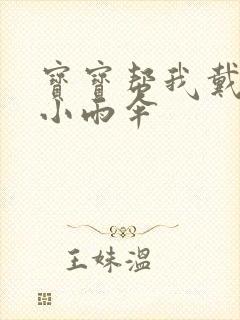 寶寶帮我戴
小雨伞
王妹温